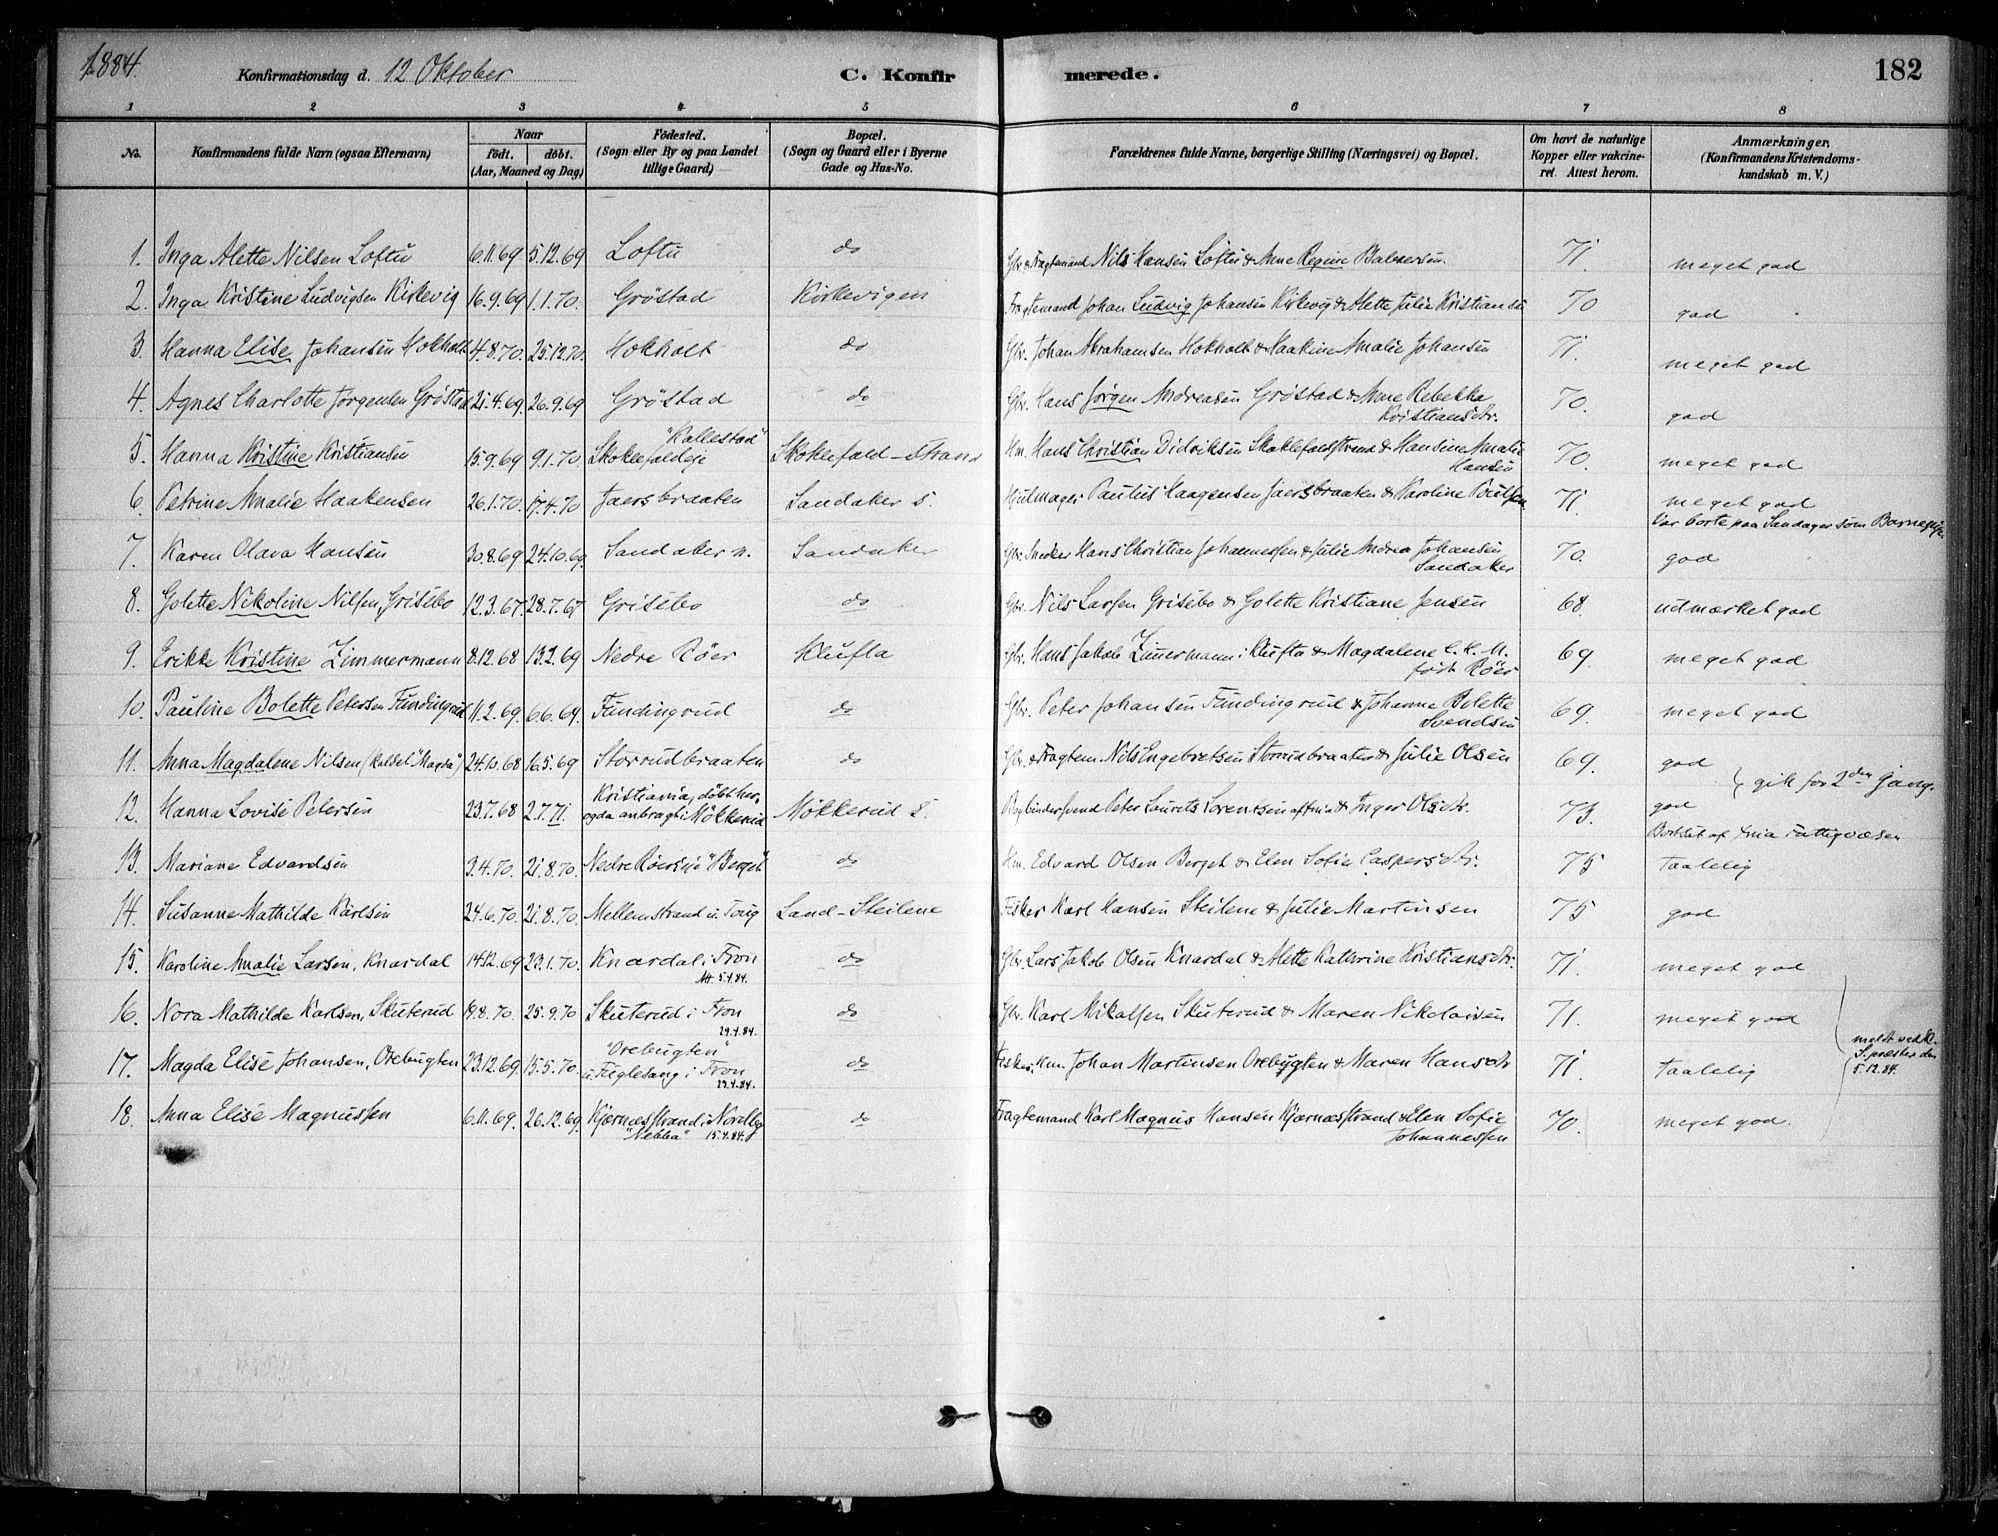 1884.
Konfirmationsdag d. 12 Oktober
C. Konfirmerede.
182
1 2 3 4 5 6 7 8
No.
Konfirmandens fulde Navn (ogsaa Efternavn)
Naar
født. døbt.
(Aar, Maaned og Dag)
Födested.
(Sogn eller By og paa Landet
tillige Gaard)
Bopæl.
(Sogn og Gaard eller i Byerne
Gade og Hus-No.
Forældrenes fulde Navne, borgerlige Stilling (Næringsvei) og Bopæl.
Om havt de naturlige
Kopper eller vakcine-
ret. Attest herom.
Anmærkninger.
(Konfirmandens Kristendoms-
kundskab m. V.)
1. Inga Alette Nilsen Loftu 6.11.69 5.12.69 Loftu do Gbr. & Fragtemand Nils Hansen Loftu & Anne Regine Balsersen. 71. meget god
2. Inga Kristine Ludvigsen Kirkevig 16.9.69 1.1.70. Gröstad Kirkevigen Fragtemand Johan Ludvig Johansen Kirkevig & Alette Julie Kristiansen 70 god
3. Hanna Elise Johansen Hokholt 4.8.70. 25.12.70. Hokholt do Gbr. Johan Abrahamsen Hokholt & Haakine Amalie Johansen 71. meget god
4. Agnes Charlotte Jørgensen Gröstad 21.4.69. 26.9.69 Gröstad do Gbr. Hans Jørgen Andreasen Gröstad & Anne Rebekka
Kristiansdr. 70. god
5. Hanna Kristine Kristiansen 15.9.69 9.1.70. "Kallestad"
Skoklefaldeje Skoklefald-Strand Hm. Hans Christian Didriksen Skoklefaldstrand & Hansine Amalie
Hansen 70. meget god
6. Petrine Amalie Haakensen 26.1.70. 17.4.70 Jaersbraaten Sandaker s. Hjulmager Paulus Haagensen Jaersbraaten & Karoline Poulsen. 71. meget god
Var borte paa Sandager som
7. Karen Olava Hansen 30.8.69 24.10.69. Sandaker n. Sandaker Gbr. Snedker Hans Christian Johannessen & Julie Andrea Johansen
Sandaker 70. god
8. Golette Nikoline Nilsen, Grisebo 12.3.67. 28.7.67 Grisebo do Gbr. Nils Larsen Grisebo & Golette Kristiane Jensen 68 udmærket god
9. Erikke Kristine Zimmermann 8.12.68 13.2.69 Nedre Röer Klufta Gbr. Hans Jakob Zimmermann i Klufta & Magdalene C. K. M.
født Röer 69. meget god
10. Pauline Bolette Petersen Fundingrud 11.2.69. 6.6.69. Fundingrud do Gbr. Peter Johansen Fundingrud & Johanne Bolette
Svendsen 69. meget god
11. Anna Magdalene Nilsen (kaldet "Magda") 24.10.68 16.5.69 Storrudbraaten do Gbr. & Fragtem. Nils Engebretsen Storrudbraaten & Julie Olsen 69. god
gik for 2den Gang.
12. Hanna Lovise Petersen 23.7.68 2.7.71. Kristiania, döbt her,
ogda anbragt i Møkkerud Møkkerud s. Bogbindersvend Peter Laurits Sorenssen & Inger Olsdr. 73. god
Bortsat af Kria Fattigvæsen
13. Mariane Edvardsen 3.4.70. 21.8.70. Nedre Röerseje "Berget" do Hm. Edvard Olsen Berget & Elen Sofie Caspersdr. 75 taalelig
14. Susanne Mathilde Karlsen 24.6.70. 21.8.70. Mellemstrand u. Toug Land-Steilene Fisker Karl Hansen Steilene & Julie Martinsen 75. god
15. Karoline Amalie Larsen, Knardal 14.12.69 23.1.70. Knardal i Fron
Att. 5.4.84. do Gbr. Lars Jakob Olsen Knardal & Alette Kathrine Kristiansdr. 71. meget god
16. Nora Mathilde Karlsen, Skuterud 19.8.70. 25.9.70 Skuterud i Fron
29.4.84. do Gbr. Karl Mikalsen Skuterud & Maren Nikolaisen 71. meget god
17. Magda Elise Johansen, Orebugten 23.12.69. 15.5.70. "Orebugten"
u. Fuglesang i Fron
29.4.84. do Fisker, Hm. Johan Martinsen Orebugten & Maren Hansdr 71. taalelig
meldt vedk.
S.præster den
5.12.84.
18. Anna Elise Magnussen 6.11.69. 26.12.69. Kjærnæsstrand i Nordby
"Nebba" 15.4.84. do Fragtemand Karl Magnus Hansen Kjærnæsstrand & Elen Sofie
Johannessen 70. meget god.